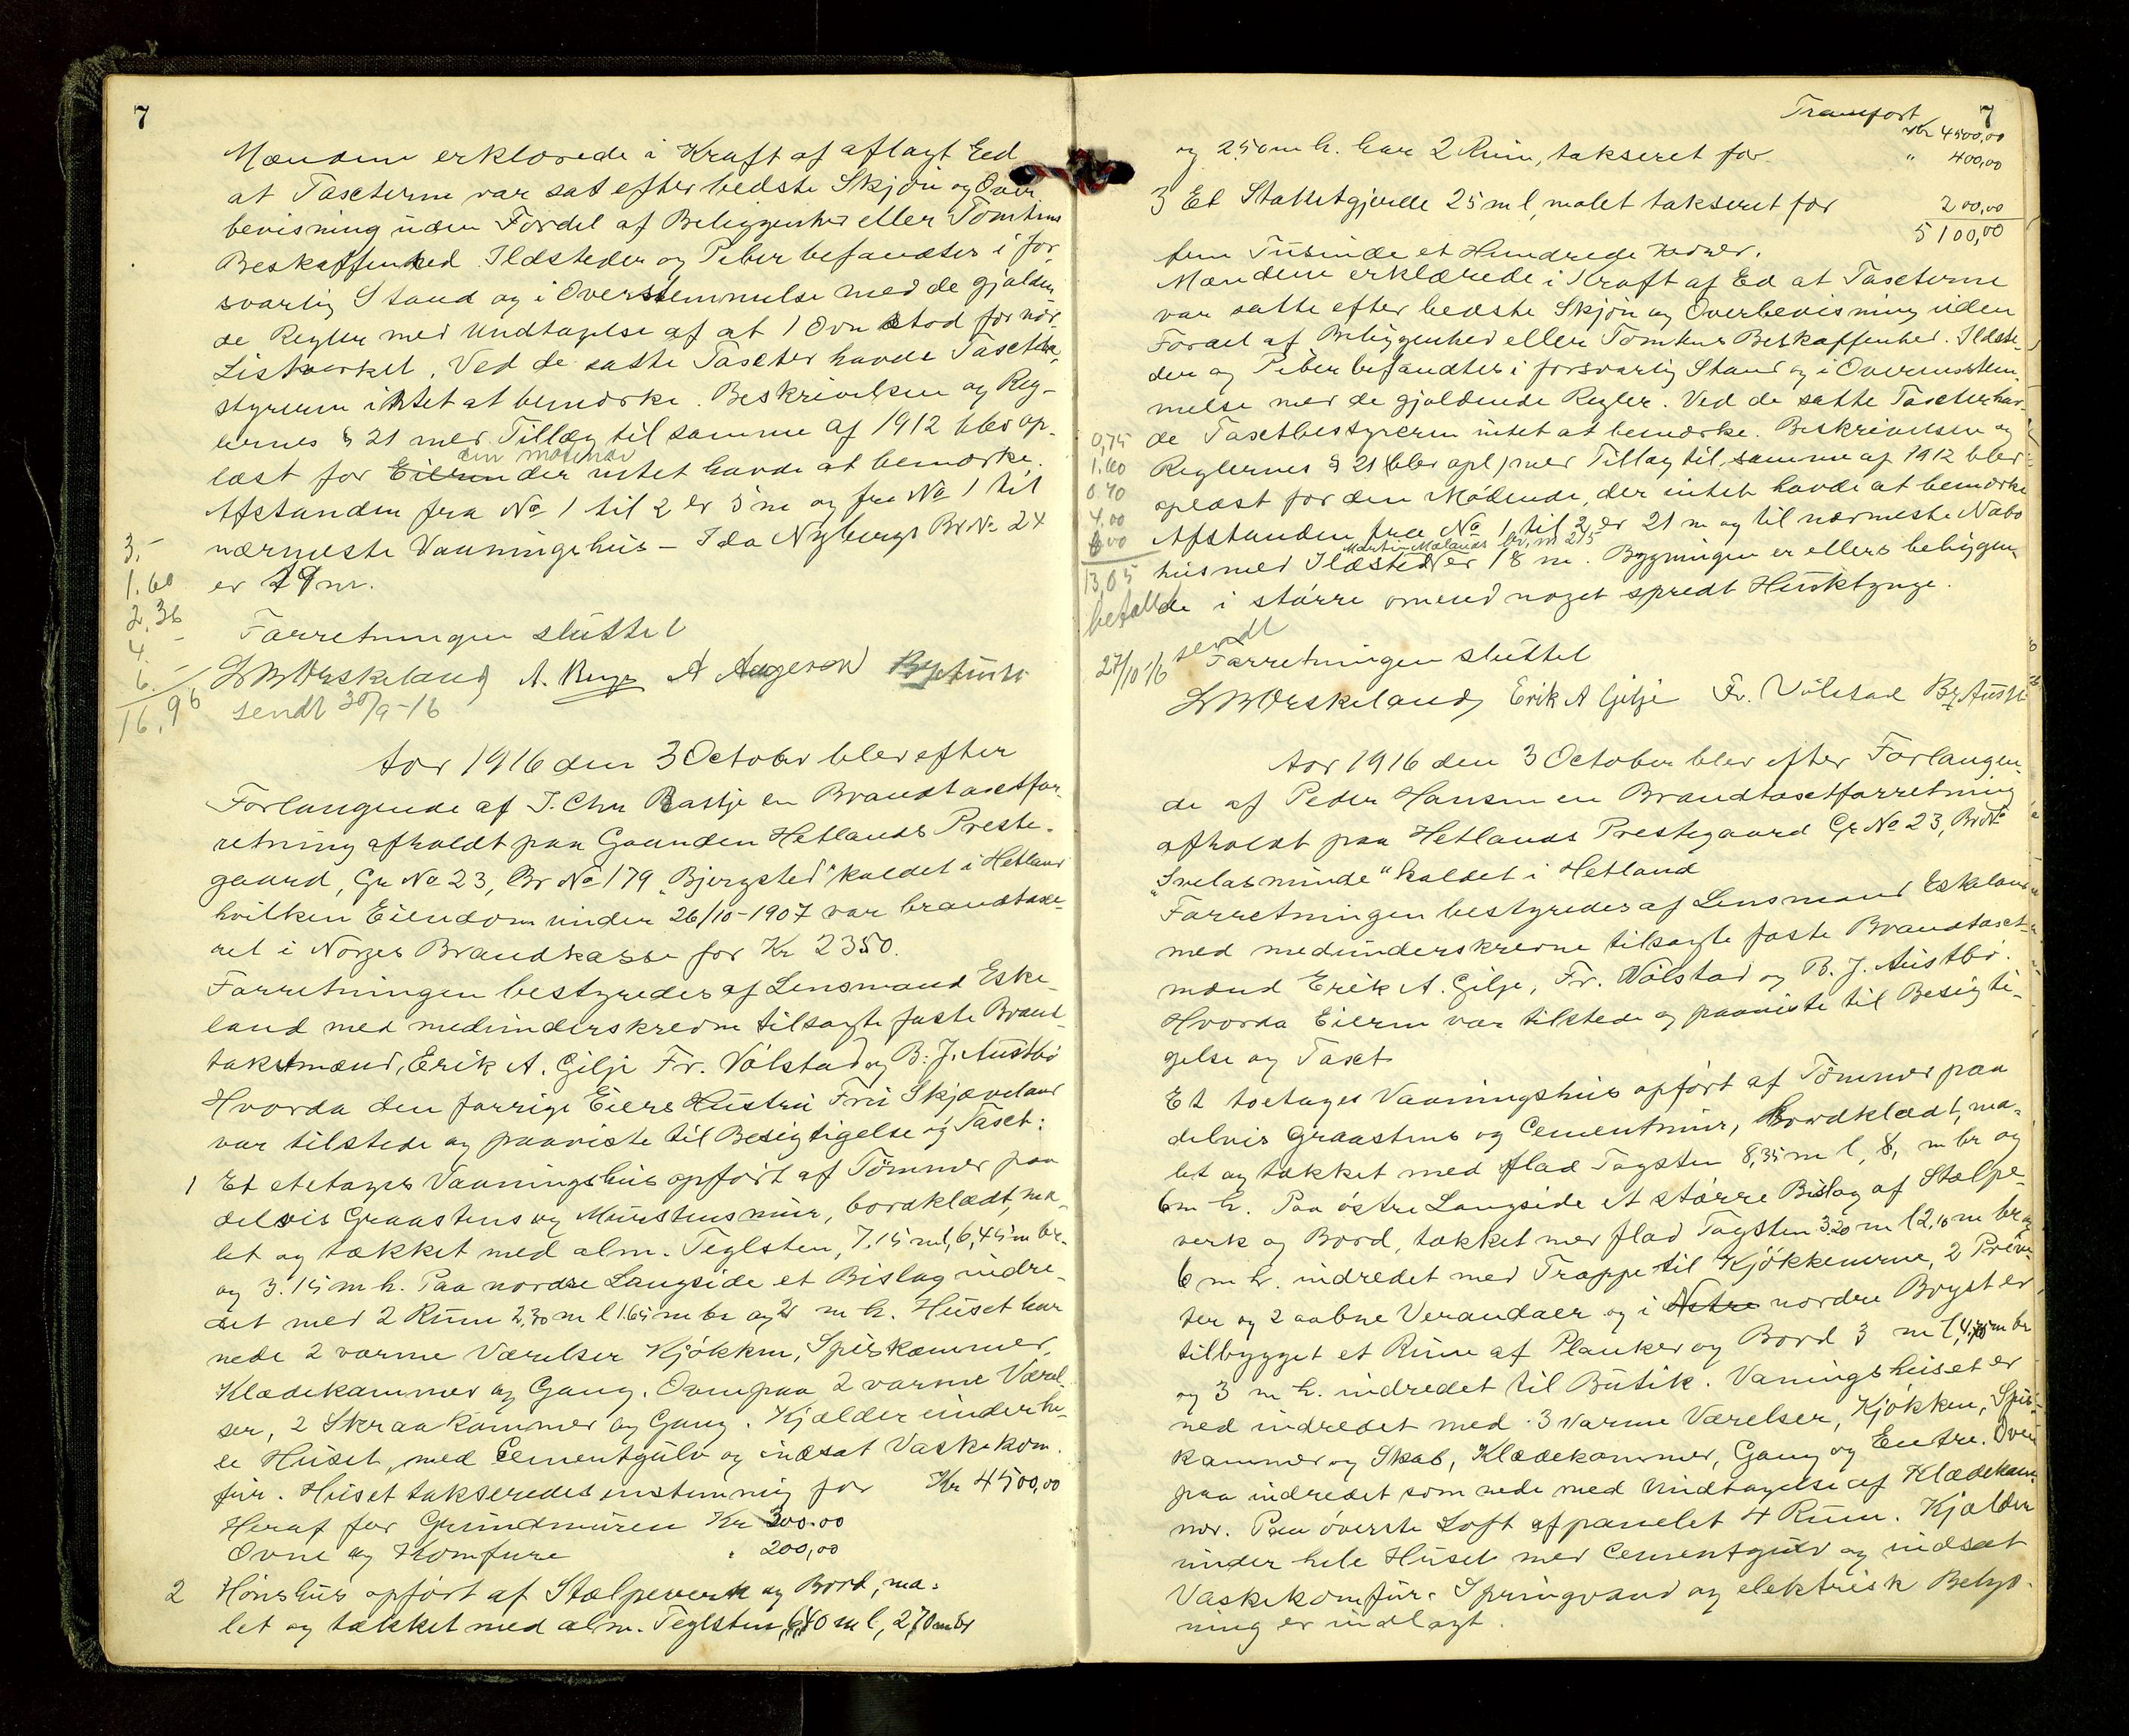 7
Mændene erklærede i Kraft af aflagt Eed
at Taxterne var sat efter bedste Skjøn og Over
bevisning uden Fordel af Beliggenhed eller Tomtens
Beskaffenhed. Ildsteder og Piber befandtes i for
svarlig Stand og i Overstemmelse med de gjælden
de Regler med Undtagelse af at 1 Ovn stod for nær
Listverket. Ved de satte Taxter havde Taxtbe
styreren intet at bemærke. Beskrivelsen og Reg-
lernes § 21 med Tillæg til samme af 1912 blev op-
den mødende
læst for Eieren der intet havde at bemærke.
Afstanden fra No 1 til 2 er 5 m og fra No 1 til
nærmeste Vaaningshus - Ida Nybergs Br No 24
er 19 m.
3,-
1.60
2,36
4 -
6. -
16,96
Forretningen sluttet
A Aageson
sendt 30/9-16
Aar 1916 den 3 October blev efter
Forlangende af J. Chr Rastje en Brandtaxtfor-
retning afholdt paa Gaarden Hetlands Preste-
gaard, Gr No 23, Br No 179 "Bjergsted" kaldet i Hetland
hvilken Eiendom under 26/10-1907 var brandtaxe-
ret i Norges Brandkasse for Kr 2350.
Forretningen bestyredes af Lensmand Eske-
land med medunderskrevne tilsagte faste Brand-
takstmænd, Erik A. Gilje Fr. Vólstad og B. J. Austbø
Hvorda den forrige Eiers Hustru Fru Skjæveland
var tilstede og paaviste til Besigtigelse og Taxt:
1 Et etetages Vaaningshus opført af Tømmer paa
delvis Graastens og Murstensmur, bordklædt, ma-
let og tækket med alm. Teglsten, 7.15 m l, 6,45 m br.
og 3.15 m h. Paa nordre Langside et Bislag indre-
det med 2 Rum 2,30 m l 1.65 m br og 2 m h. Huset har
nede 2 varme Værelser Kjøkken, Spiskammer,
Klædekammer og Gang. Ovenpaa 2 varme Værel
ser, 2 Skraakammer og Gang. Kjælder under he-
le Huset, med Cementgulv og indsat Vaskekom-
fur. Huset takseredes enstemmig for Kr 4500,00
Heraf for Grundmuren Kr 300.00
Ovne og Komfure " 200,00
2 Hønshus opført af Stolpeverk og Bord, ma-
let og tækket med alm. Teglsten, 6,40 m l, 2,70 m br
7
Transport Kr 4500,00
og 2,50 m h. har 2 Rum, takseret for " 400,00
3 Et Stakitgjerde 25 m l, malet takseret for 200,00
5100,00
fem Tusinde et Hundrede Kroner.
Mændene erklærede i Kraft af Ed at Taxterne
var satte efter bedste Skjøn og Overbevisning uden
Fordel af Beliggenhed eller Tomtens Beskaffenhed. Ildste-
der og Piber befandtes i forsvarlig Stand og i Overensstem
melse med de gjældende Regler. Ved de satte Taxter hav-
de Taxtbestyreren intet at bemærke. Beskrivelsen og
Reglernes § 21 (blev opl) med Tillæg til samme af 1912 blev
oplæst for den Mødende, der intet havde at bemærke
Afstanden fra No 1 til 2 er 21 m og til nærmeste Nabo
Martin Mælands Br. n 215
hus med Ildsted er 18 m. Bygningen er ellers beliggen
de i større omend noget spredt Husklynge.
0,75
1.60
0.70
4.00
6 00
13,05
betalt
sendt
27/10 16
Forretningen sluttet
Erik A Gilje Fr. Vólstad
Aar 1916 den 3 October blev efter Forlangen-
de af Peder Hansen en Brandtaxtforretning
afholdt paa Hetlands Prestegaard Gr No 23, Br No
"Svelasminde" kaldet i Hetland
Forretningen bestyredes af Lensmand Eskeland
med medunderskrevne tilsagte faste Brandtaxt-
mænd Erik A. Gilje, Fr. Vólstad og B. J. Austbø.
Hvorda Eieren var tilstede og paaviste til Besigti-
gelse og Taxt
Et toetages Vaaningshus opført af Tømmer paa
delvis Graastens og Cementmur, Bordklædt, ma-
let og tækket med flad Tagsten 8,35 m l, 8, m br og
6 m h. Paa østre Langside et større Bislag af Stolpe-
verk og Bord, tækket med flad Tagsten 3.20 m l 2,10 m br og
6 m h. indredet med Trappe til Kjøkkenerne, 2 Prive-
ter og 2 aabne Verandaer og i nordre Bryst er
tilbygget et Rum af Planker og Bord 3 m l, m br
og 3 m h. indredet til Butik. Vaningshuset er
ned indredet med 3 varme Værelser, Kjøkken, Spis-
kammer og Skab, Klædekammer, Gang og Entre. Oven
paa indredet som nede med Undtagelse af Klædekam-
mer. Paa øverste Loft afpanelet 4 Rum. Kjælder
under hele Huset med Cementgulv og indsat
Vaskekomfur. Springvand og elektrisk Belys-
ning er indlagt.